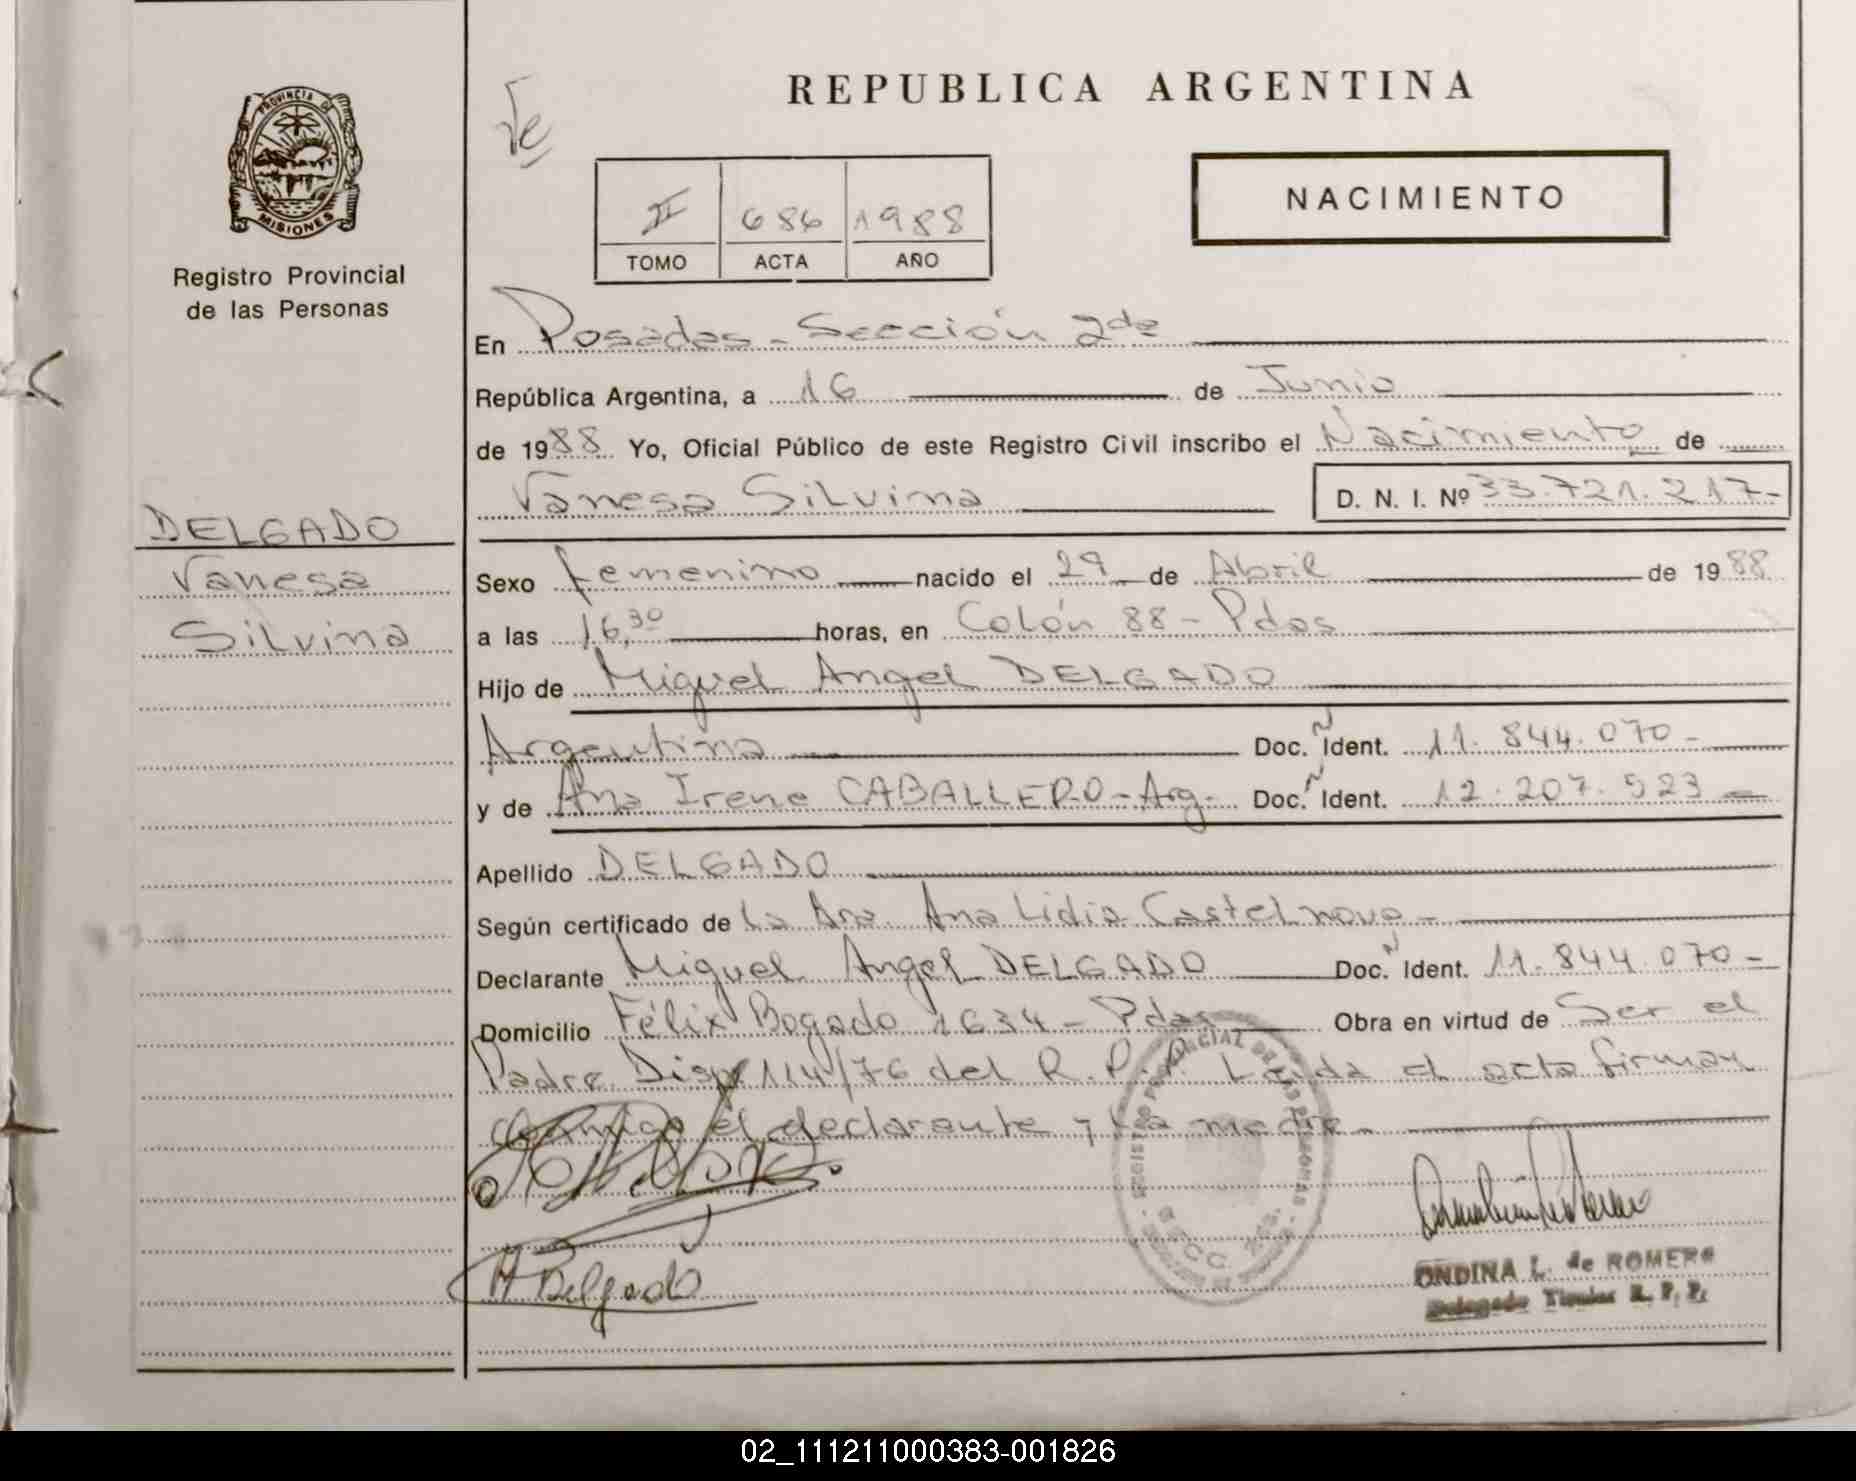 REPUBLICA ARGENTINA
PROVINCIA DE
MISIONES
Registro Provincial
de las Personas
II 686 1988
TOMO ACTA AÑO
NACIMIENTO
En Posadas - Sección 2da
República Argentina, a 16 de Junio
de 1988 Yo, Oficial Público de este Registro Civil inscribo el Nacimiento de
Vanesa Silvina D. N. I. Nº 33.721.217-
DELGADO
Vanesa
Silvina
Sexo femenino nacido el 29 de Abril de 1988
a las 16,30 horas, en Colón 88 - Pdas
Hijo de Miguel Angel DELGADO
Argentina Doc. Ident. 11.844.070-
y de Ana Irene CABALLERO - Arg. Doc. Ident. 12.207.523
Apellido DELGADO
Según certificado de la Ana Lidia Castelnovo -
Declarante Miguel Angel DELGADO Doc. Ident. 11.844.070-
Domicilio Félix Bogado 1634 - Pdas Obra en virtud de Ser el
Padre Disp 114/76 del R.P.P. Leída el acta firman
conmigo el declarante y la madre -
A Delgado
ONDINA L. de ROMERO
Delegado Titular R. P. P.
02_111211000383-001826